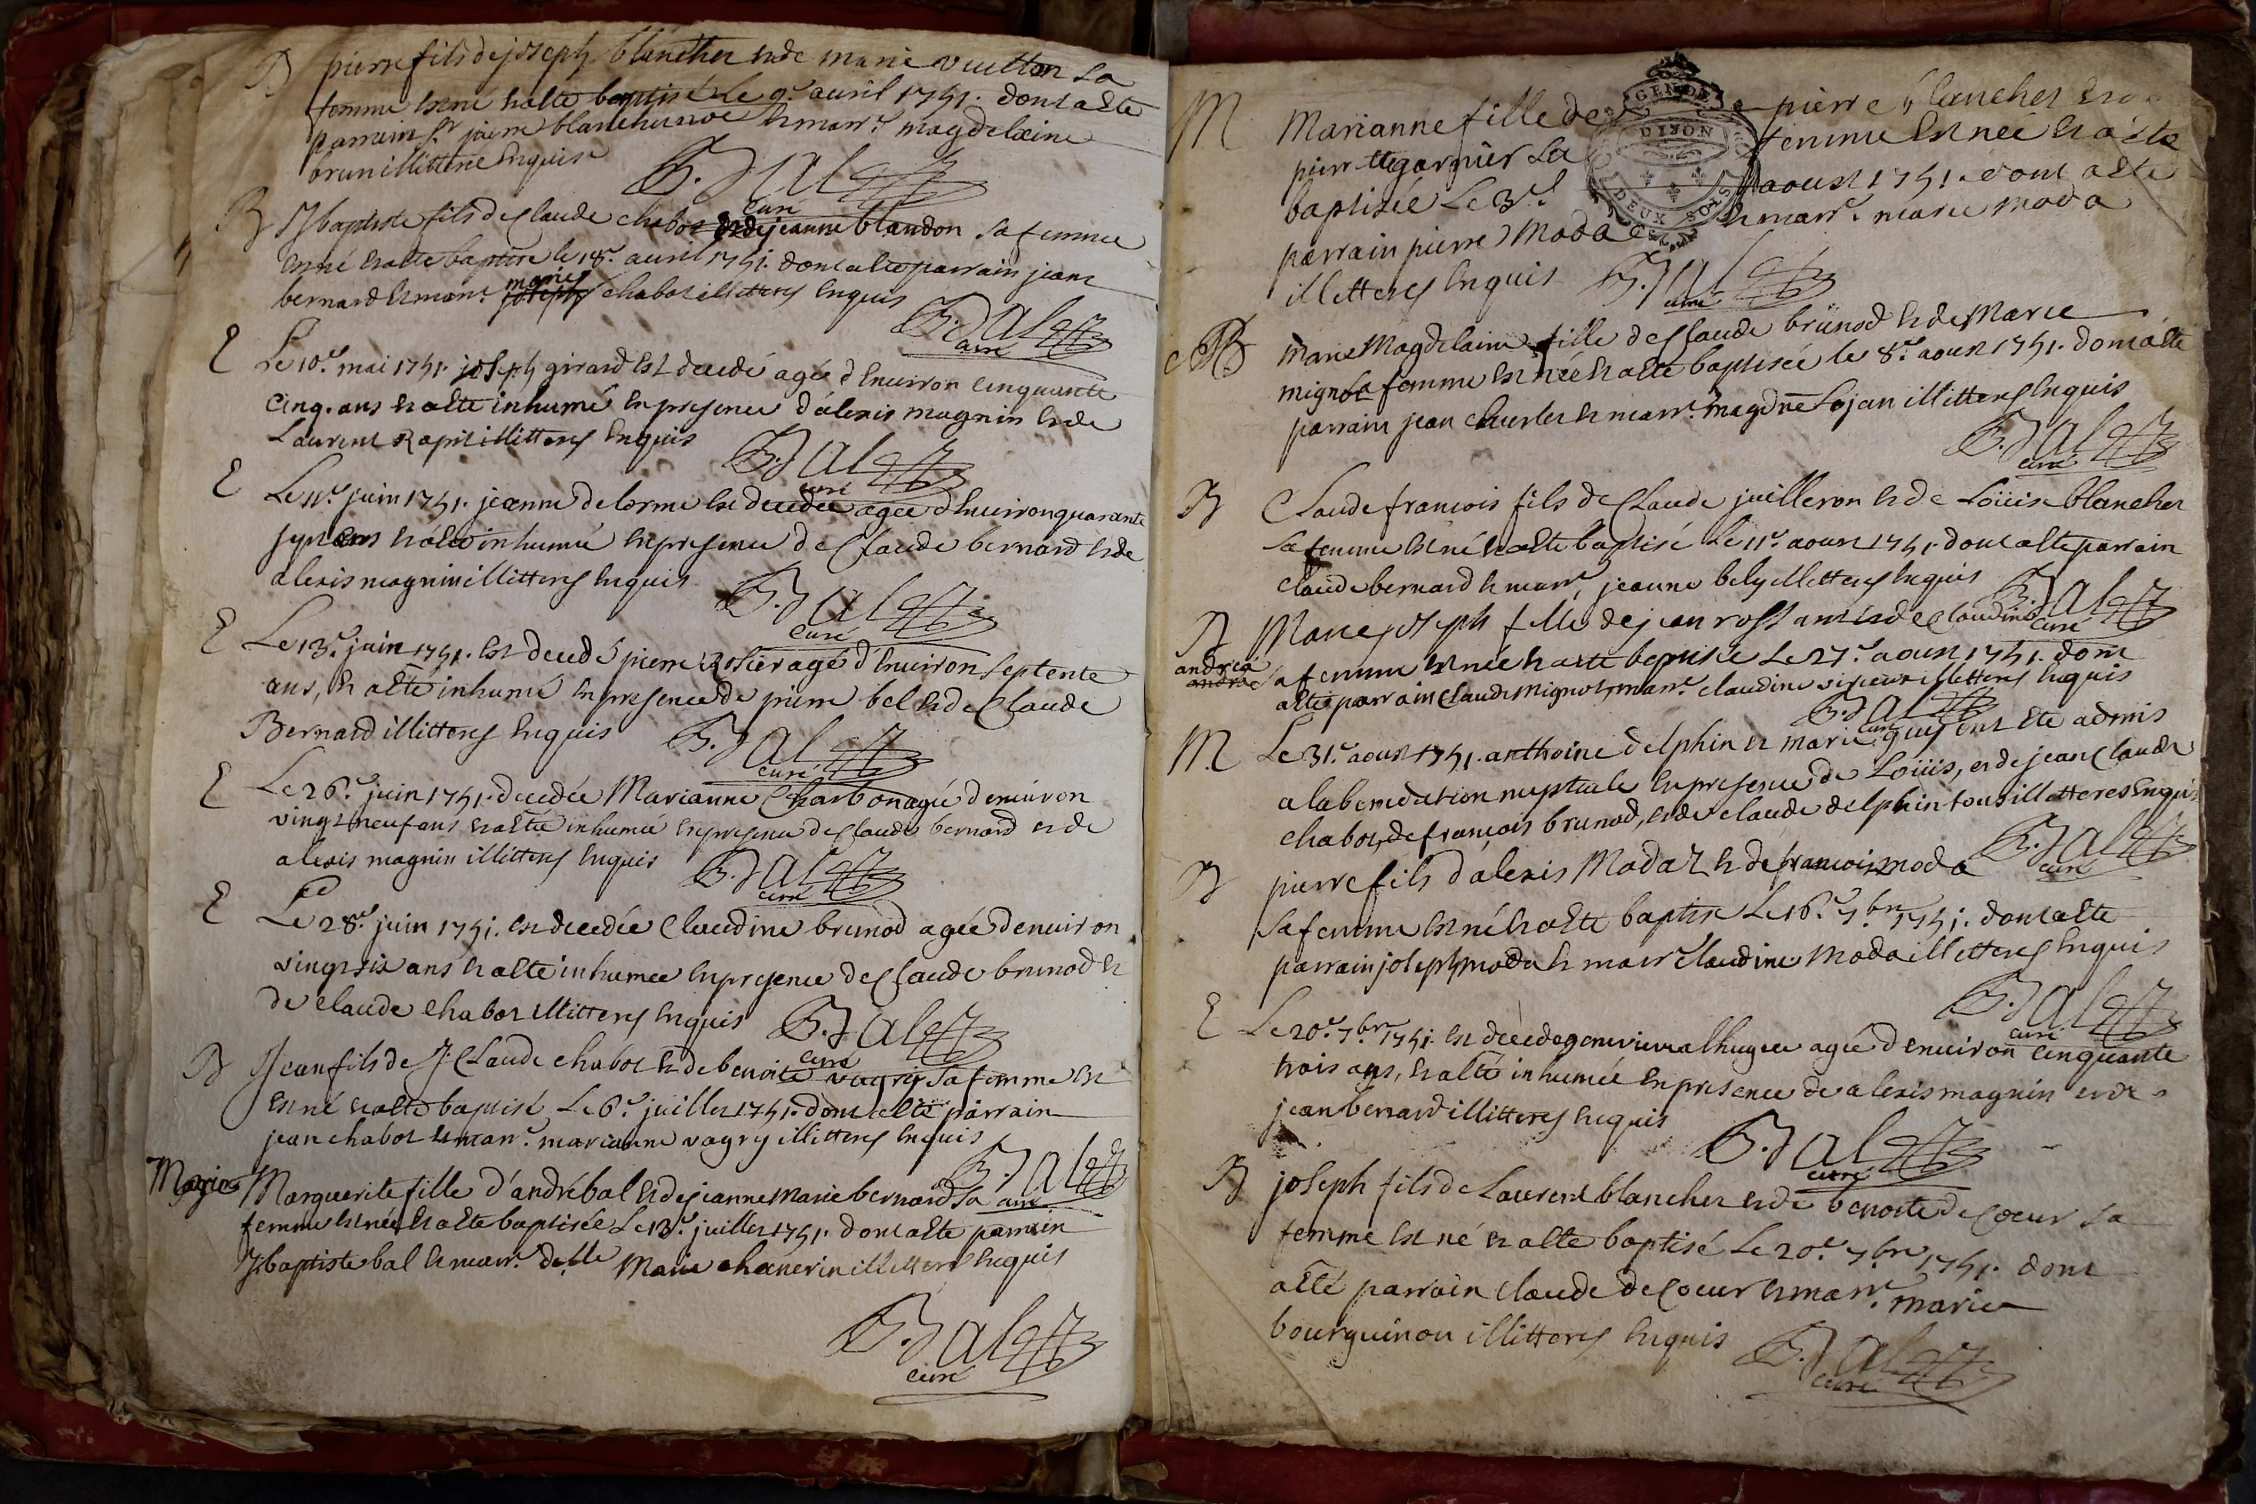 B pierre fils de joseph blancher et de marie vuitton sa
femme est né et a été baptisé le 9e avril 1751. dont a été
parrain Sr pierre blancher et marr. magdelaine
brun illitteré enquis
B. Jal
curé
B J baptiste fils de Claude chabot et de jeanne blandon sa femme
est né et a été baptisé le 18e avril 1751. dont a été parrain jean
bernard et marr. marie joseph chabot illitterés enquis
B. Jal
curé
E Le 10e mai 1751. joseph girard est decedé agé d'environ cinquante
cinq ans et a été inhumé en presence d'alexis magnin et de
Laurent Rapit illitterés enquis
B. Jal
curé
E Le 11e juin 1751. jeanne delorme est decedée agée d'environ quarante
sept ans et a été inhumée en presence de Claude bernard et de
alexis magnin illitterés enquis
B. Jal
curé
E Le 13e juin 1751. est decedé pierre Rosier agé d'environ septente
ans, et a été inhumé en presence de pierre bel et de Claude
Bernard illitterés enquis
B. Jal
curé
E Le 26e juin 1751. decedée Marianne Charbon agée d'environ
vingt neuf ans et a été inhumée en presence de Claude bernard et de
alexis magnin illitterés enquis
B. Jal
curé
E Le 28e juin 1751. est decedée Claudine brunod agée d'environ
vingt six ans et a été inhumée en presence de Claude brunod et
de Claude Chabot illitterés enquis
B. Jal
curé
B Jean fils de J. Claude chabot et de benoite vagry sa femme est
est né et a été baptisé Le 6e juillet 1751. dont a été parrain
jean chabot et marr. marianne vagry illitterés enquis
B. Jal
curé
Marie Marguerite fille d'andré bal et de jeanne Marie bernard sa
femme est née et a été baptisée Le 13e juillet 1751. dont a été parrain
J. baptiste bal et marr. delle Marie chanerin illitterés enquis
B. Jal
curé
M Marianne fille de pierre blancher et de
GEN DE DIJON
DEUX SOLS
pierrette garnier sa femme est née et a été
baptisée Le 3e aoust 1751. dont a été
parrain pierre Moda et marr. marie moda
illitterés enquis
B. Jal
curé
B Marie Magdelaine fille de Claude brunod et de Marie
mignot sa femme est née et a été baptisée le 8e aoust 1751. dont a été
parrain jean et marr. magdne Lojan illitterés enquis
B. Jal
curé
B Claude francois fils de Claude juilleron et de Loüise blancher
sa femme est né et a été baptisé Le 11e aoust 1751. dont a été parrain
claude bernard et marr. jeanne bely illitterés enquis
B. Jal
curé
B Marie joseph fille de jean et de Claudine
andréa
andréa
sa femme est née et a été baptisée Le 27e aoust 1751. dont
a été parrain Claude Mignot, marr. claudine illitterés enquis
B. Jal
curé
M. Le 31e aoust 1751. anthoine delphin et marie guy ont été admis
a la benediction nuptiale en presence de Loüis, et de jean Claude
chabot, de françois brunod, et de claude delphin tous illitterés enquis
B. Jal
curé
B pierre fils d'alexis Moda et de francoise moda
sa femme est né et a été baptisé Le 16e 7bre 1751. dont a été
parrain joseph moda et marr. Claudine Moda illitterés enquis
B. Jal
curé
E Le 20e 7bre 1751. est decedé genevieve agée d'environ cinquante
trois ans, et a été inhumée en presence de alexis magnin et de
jean bernard illitterés enquis
B. Jal
curé
B joseph fils de Laurent blancher et de benoite de Coeur sa
femme est né et a été baptisé Le 20e 7bre 1751. dont
a été parrain Claude de Coeur et marr. marie
bourguinon illitterés enquis
B. Jal
curé